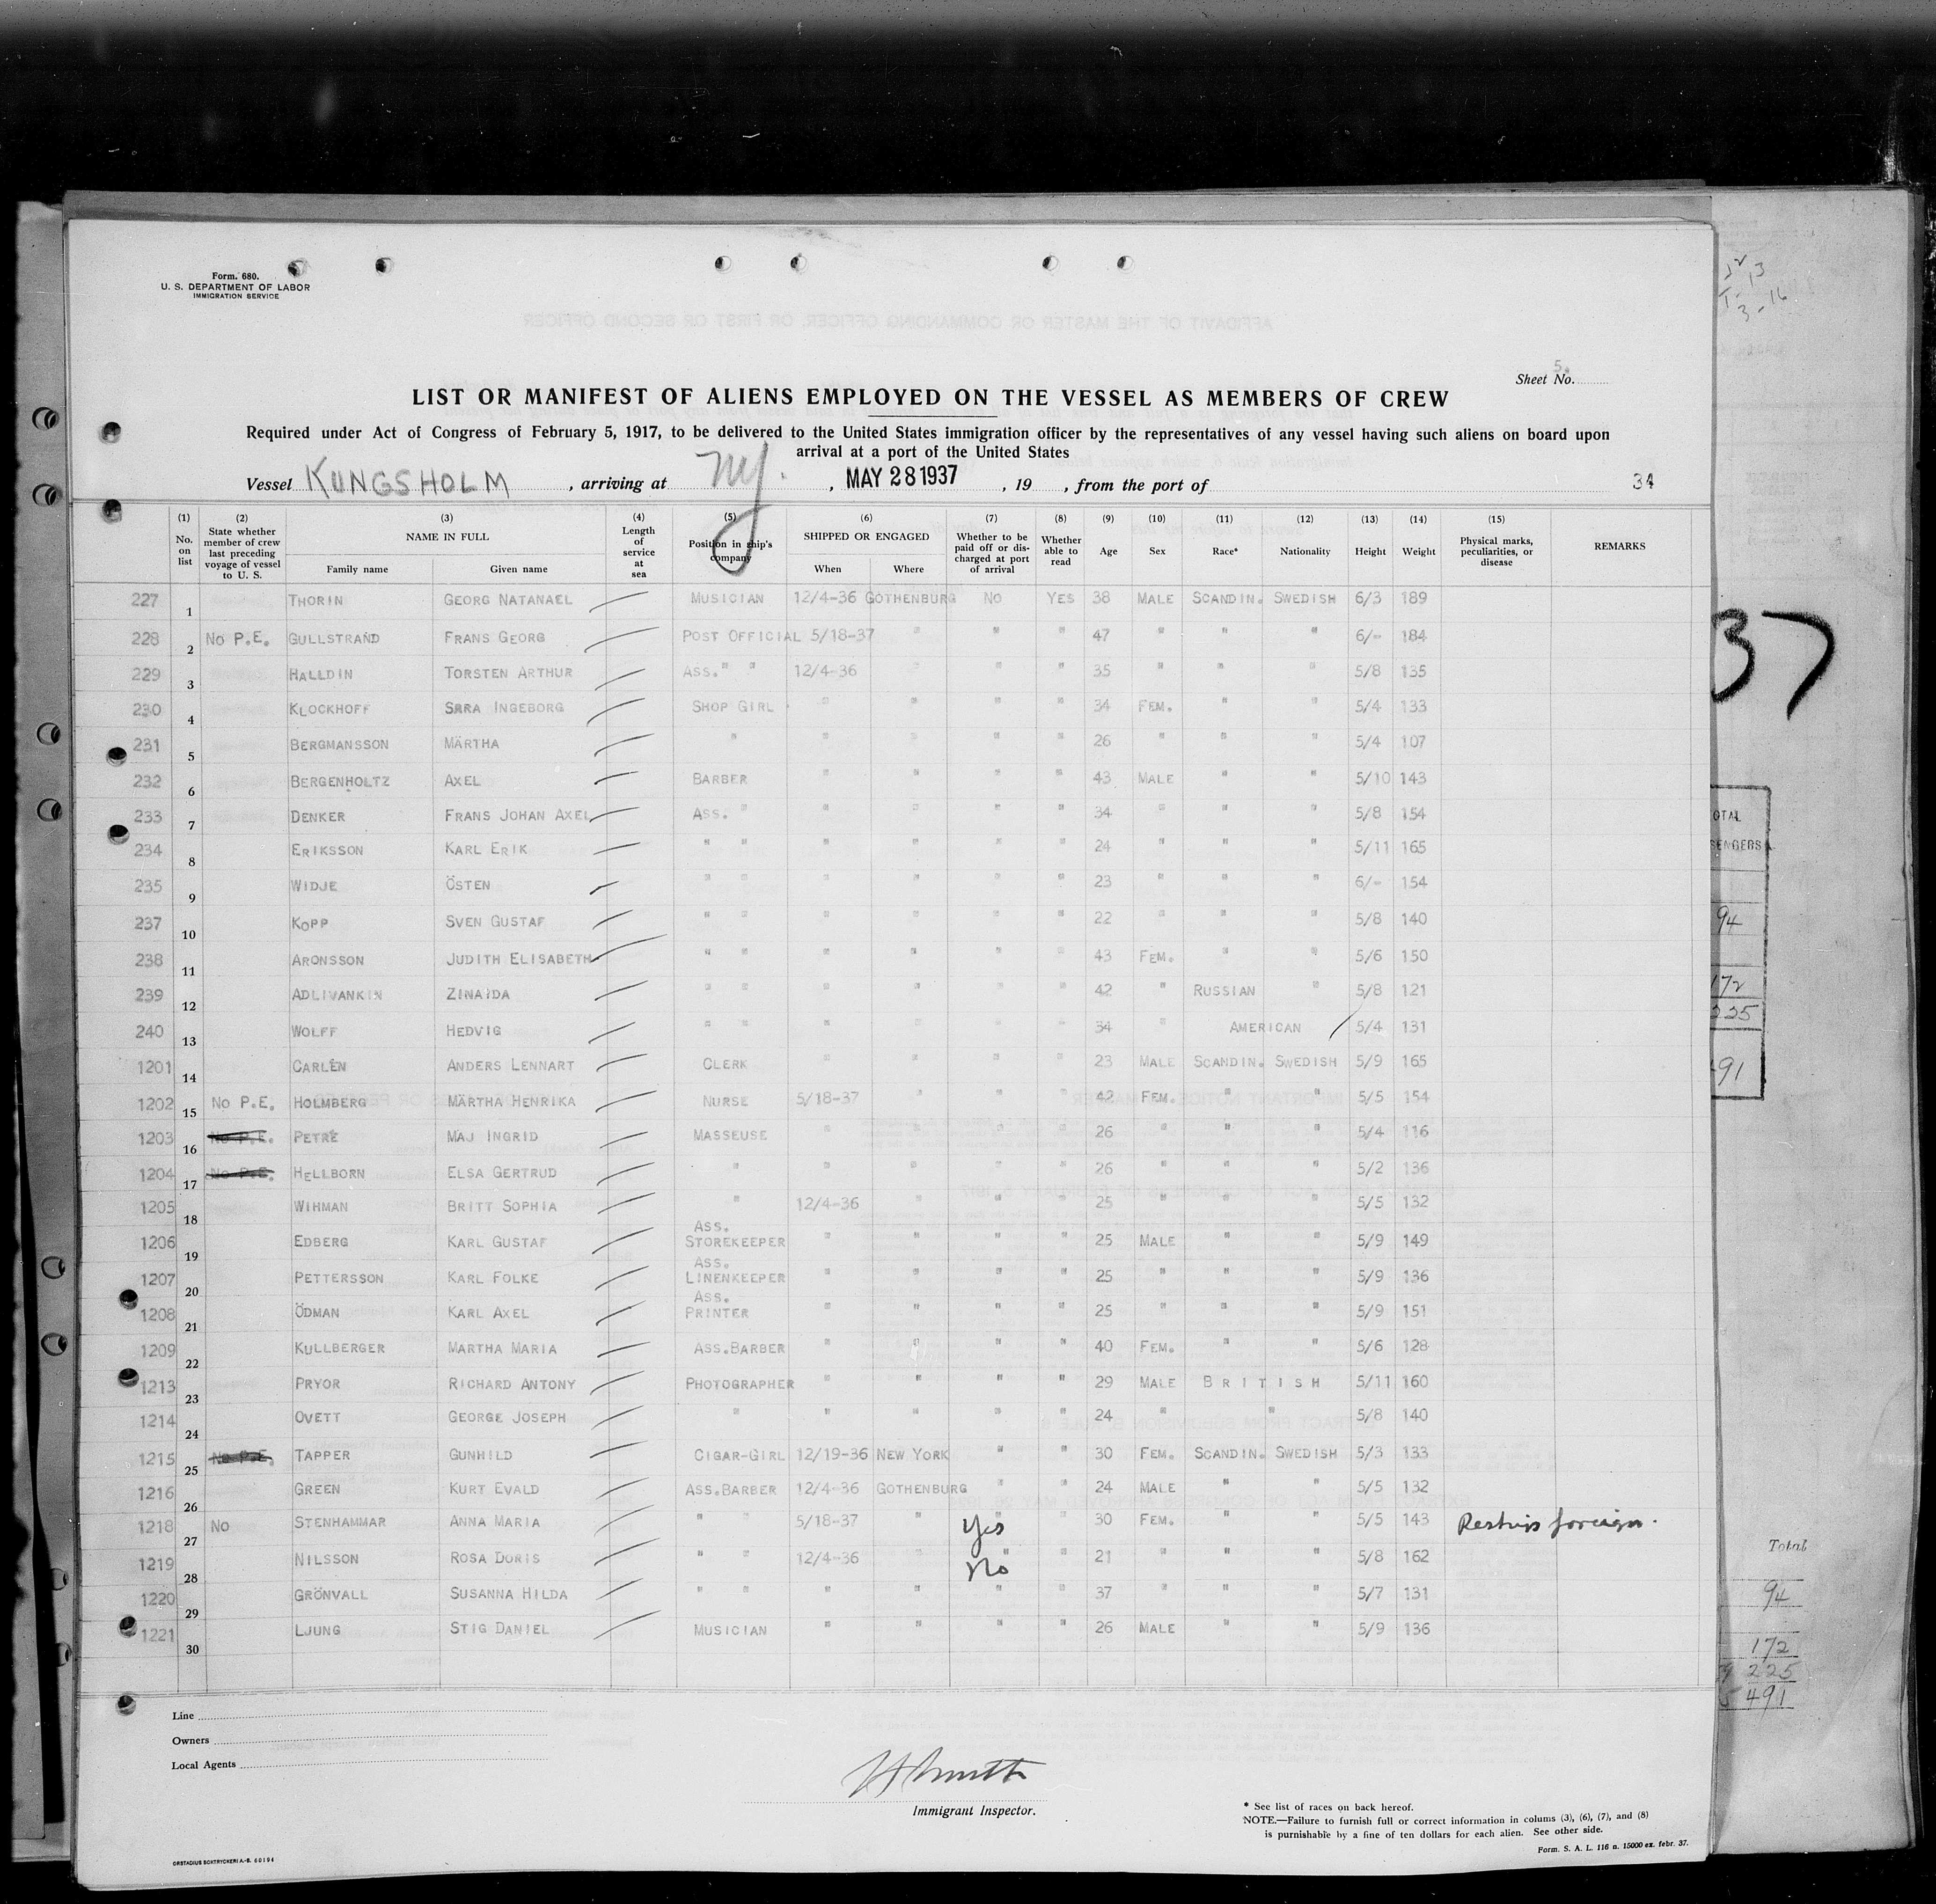 Form. 680.
U. S. DEPARTMENT OF LABOR
IMMIGRATION SERVICE
Sheet No. 5.
LIST OR MANIFEST OF ALIENS EMPLOYED ON THE VESSEL AS MEMBERS OF CREW
Required under Act of Congress of February 5, 1917, to be delivered to the United States immigration officer by the representatives of any vessel having such aliens on board upon
arrival at a port of the United States
Vessel KUNGSHOLM, arriving at NY., MAY 28 1937, 19, from the port of 34
(1) No. on list (2) State whether member of crew last preceding voyage of vessel to U. S. (3) NAME IN FULL Family name Given name (4) Length of service at sea (5) Position in ship's company (6) SHIPPED OR ENGAGED When Where (7) Whether to be paid off or discharged at port of arrival (8) Whether able to read (9) Age (10) Sex (11) Race* (12) Nationality (13) Height (14) Weight (15) Physical marks, peculiarities, or disease REMARKS
227 1 THORIN GEORG NATANAEL MUSICIAN 12/4-36 GOTHENBURG NO YES 38 MALE SCANDIN. SWEDISH 6/3 189
228 2 NO P.E. GULLSTRAND FRANS GEORG POST OFFICIAL 5/18-37 " " " 47 " " " 6/- 184
229 3 HALLDIN TORSTEN ARTHUR ASS. " " 12/4-36 " " " 35 " " " 5/8 135
230 4 KLOCKHOFF SARA INGEBORG SHOP GIRL " " " " 34 FEM. " " 5/4 133
231 5 BERGMANSSON MÄRTHA " " " " " 26 " " " 5/4 107
232 6 BERGENHOLTZ AXEL BARBER " " " " 43 MALE " " 5/10 143
233 7 DENKER FRANS JOHAN AXEL ASS. " " " " " 34 " " " 5/8 154
234 8 ERIKSSON KARL ERIK " " " " " " 24 " " " 5/11 165
235 9 WIDJE ÖSTEN " " " " " " 23 " " " 6/- 154
237 10 KOPP SVEN GUSTAF " " " " " " 22 " " " 5/8 140
238 11 ARONSSON JUDITH ELISABETH " " " " " " 43 FEM. " " 5/6 150
239 12 ADLIVANKIN ZINAIDA " " " " " " 42 " RUSSIAN " 5/8 121
240 13 WOLFF HEDVIG " " " " " " 34 " AMERICAN 5/4 131
1201 14 CARLÉN ANDERS LENNART CLERK " " " " 23 MALE SCANDIN. SWEDISH 5/9 165
1202 15 NO P.E. HOLMBERG MÄRTHA HENRIKA NURSE 5/18-37 " " " 42 FEM. " " 5/5 154
1203 16 NO P.E. PETRÉ MAJ INGRID MASSEUSE " " " " 26 " " " 5/4 116
1204 17 NO P.E. HELLBORN ELSA GERTRUD " " " " " 26 " " " 5/2 136
1205 18 WIHMAN BRITT SOPHIA " 12/4-36 " " " 25 " " " 5/5 132
1206 19 EDBERG KARL GUSTAF ASS. STOREKEEPER " " " " 25 MALE " " 5/9 149
1207 20 PETTERSSON KARL FOLKE ASS. LINENKEEPER " " " " 25 " " " 5/9 136
1208 21 ÖDMAN KARL AXEL ASS. PRINTER " " " " 25 " " " 5/9 151
1209 22 KULLBERGER MARTHA MARIA ASS.BARBER " " " " 40 FEM. " " 5/6 128
1213 23 PRYOR RICHARD ANTONY PHOTOGRAPHER " " " " 29 MALE BRITISH 5/11 160
1214 24 OVETT GEORGE JOSEPH " " " " " 24 " " 5/8 140
1215 25 NO P.E. TAPPER GUNHILD CIGAR-GIRL 12/19-36 NEW YORK " " 30 FEM. SCANDIN. SWEDISH 5/3 133
1216 26 GREEN KURT EVALD ASS.BARBER 12/4-36 GOTHENBURG " " 24 MALE " " 5/5 132
1218 27 NO STENHAMMAR ANNA MARIA " " 5/18-37 " Yes " 30 FEM. " " 5/5 143 Reships foreign.
1219 28 NILSSON ROSA DORIS " " 12/4-36 " " No " 21 " " " 5/8 162
1220 29 GRÖNVALL SUSANNA HILDA " " " " " " 37 " " " 5/7 131
1221 30 LJUNG STIG DANIEL MUSICIAN " " " " 26 MALE " " 5/9 136
Line
Owners
Local Agents
Immigrant Inspector.
* See list of races on back hereof.
NOTE.—Failure to furnish full or correct information in colums (3), (6), (7), and (8)
is purnishable by a fine of ten dollars for each alien. See other side.
Form. S. A. L. 116 a. 15000 ex. febr. 37.
ORSTADIUS BOKTRYCKERI A.-B. 60194
3-16
37
94
172
491
Total
94
172
225
491